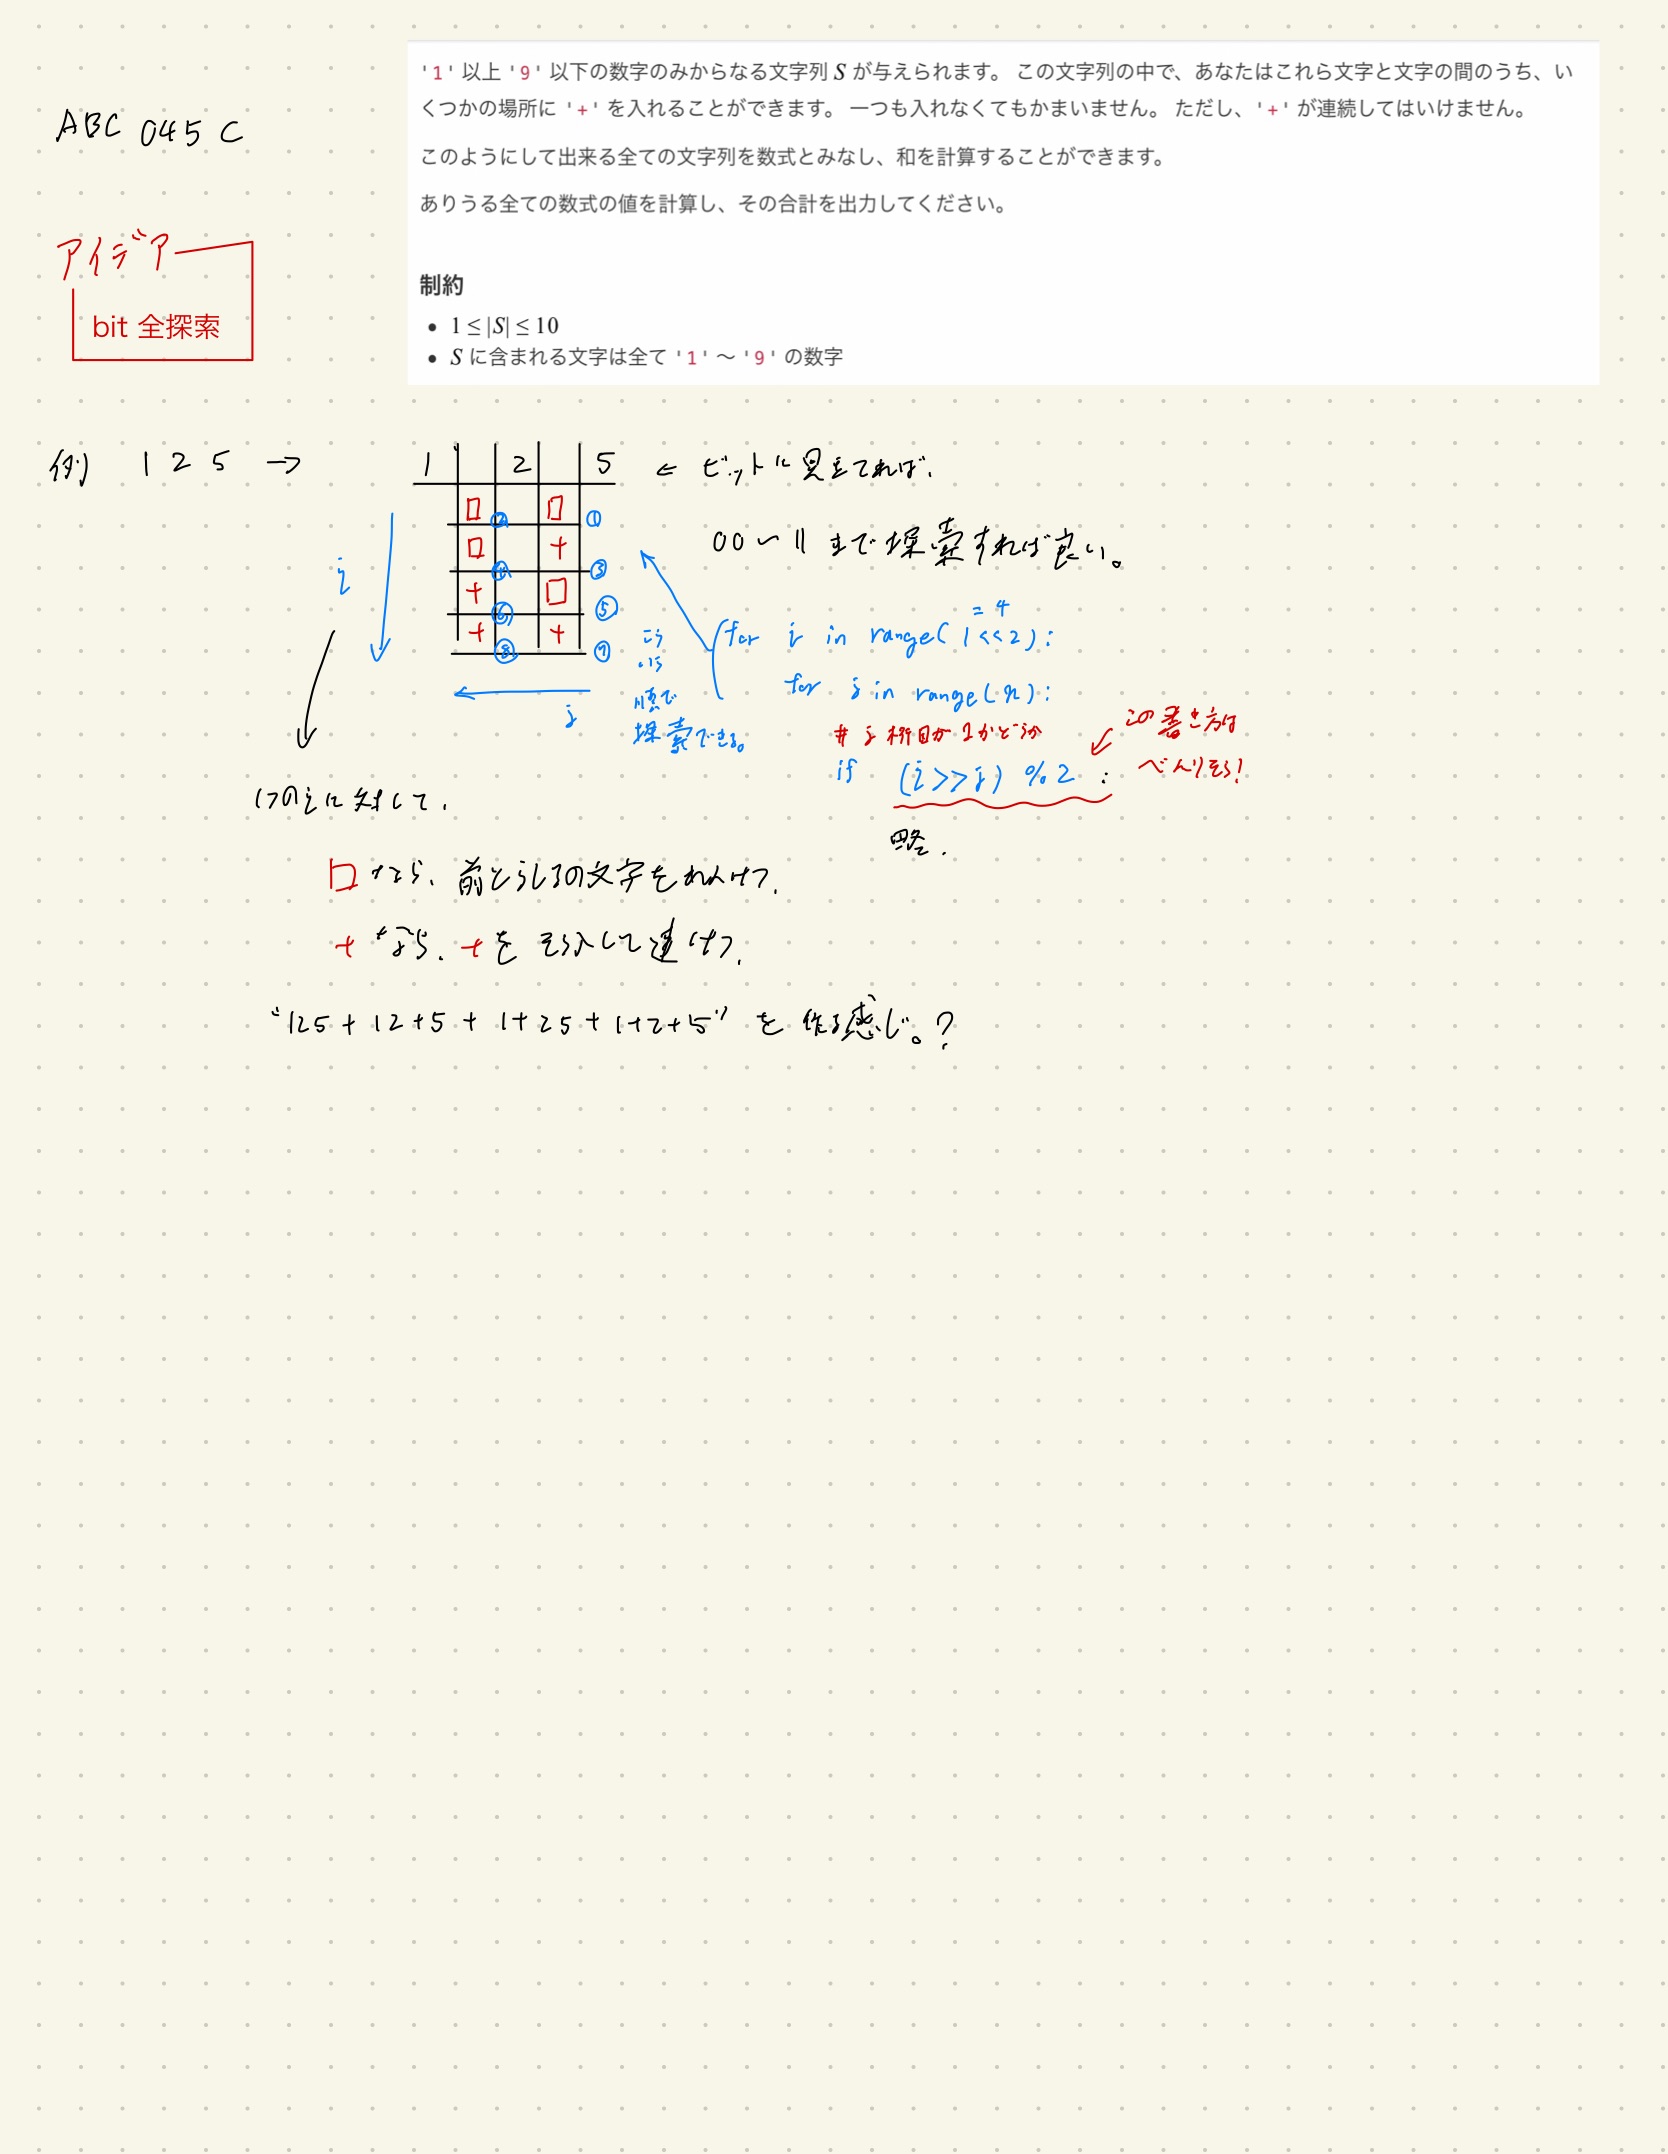 ABC 045 C
'1' 以上 '9' 以下の数字のみからなる文字列 S が与えられます。 この文字列の中で、あなたはこれら文字と文字の間のうち、い
くつかの場所に '+' を入れることができます。 一つも入れなくてもかまいません。 ただし、'+' が連続してはいけません。
このようにして出来る全ての文字列を数式とみなし、和を計算することができます。
ありうる全ての数式の値を計算し、その合計を出力してください。
制約
• 1 ≤ |S| ≤ 10
• S に含まれる文字は全て '1' 〜 '9' の数字
アイデア
bit 全探索
例) 1 2 5 →
1 2 5
□ ② □ ①
□ ④ + ③
+ ⑥ □ ⑤
+ ⑧ + ⑦
i
j
← ビットに見立てれば、
00〜11 まで探索すれば良い。
こう
いう
順で
探索できる。
= 4
for i in range( 1<<2 ):
for j in range(n):
# j 桁目が 1かどうか
if (i>>j) %2 :
略.
この書き方は
べんりそう!
1つのiに対して、
□ なら、前とうしろの文字をれんけつ、
+ なら、+を そう入して連けつ、
"125 + 12+5 + 1+25 + 1+2+5" を 作る感じ。?